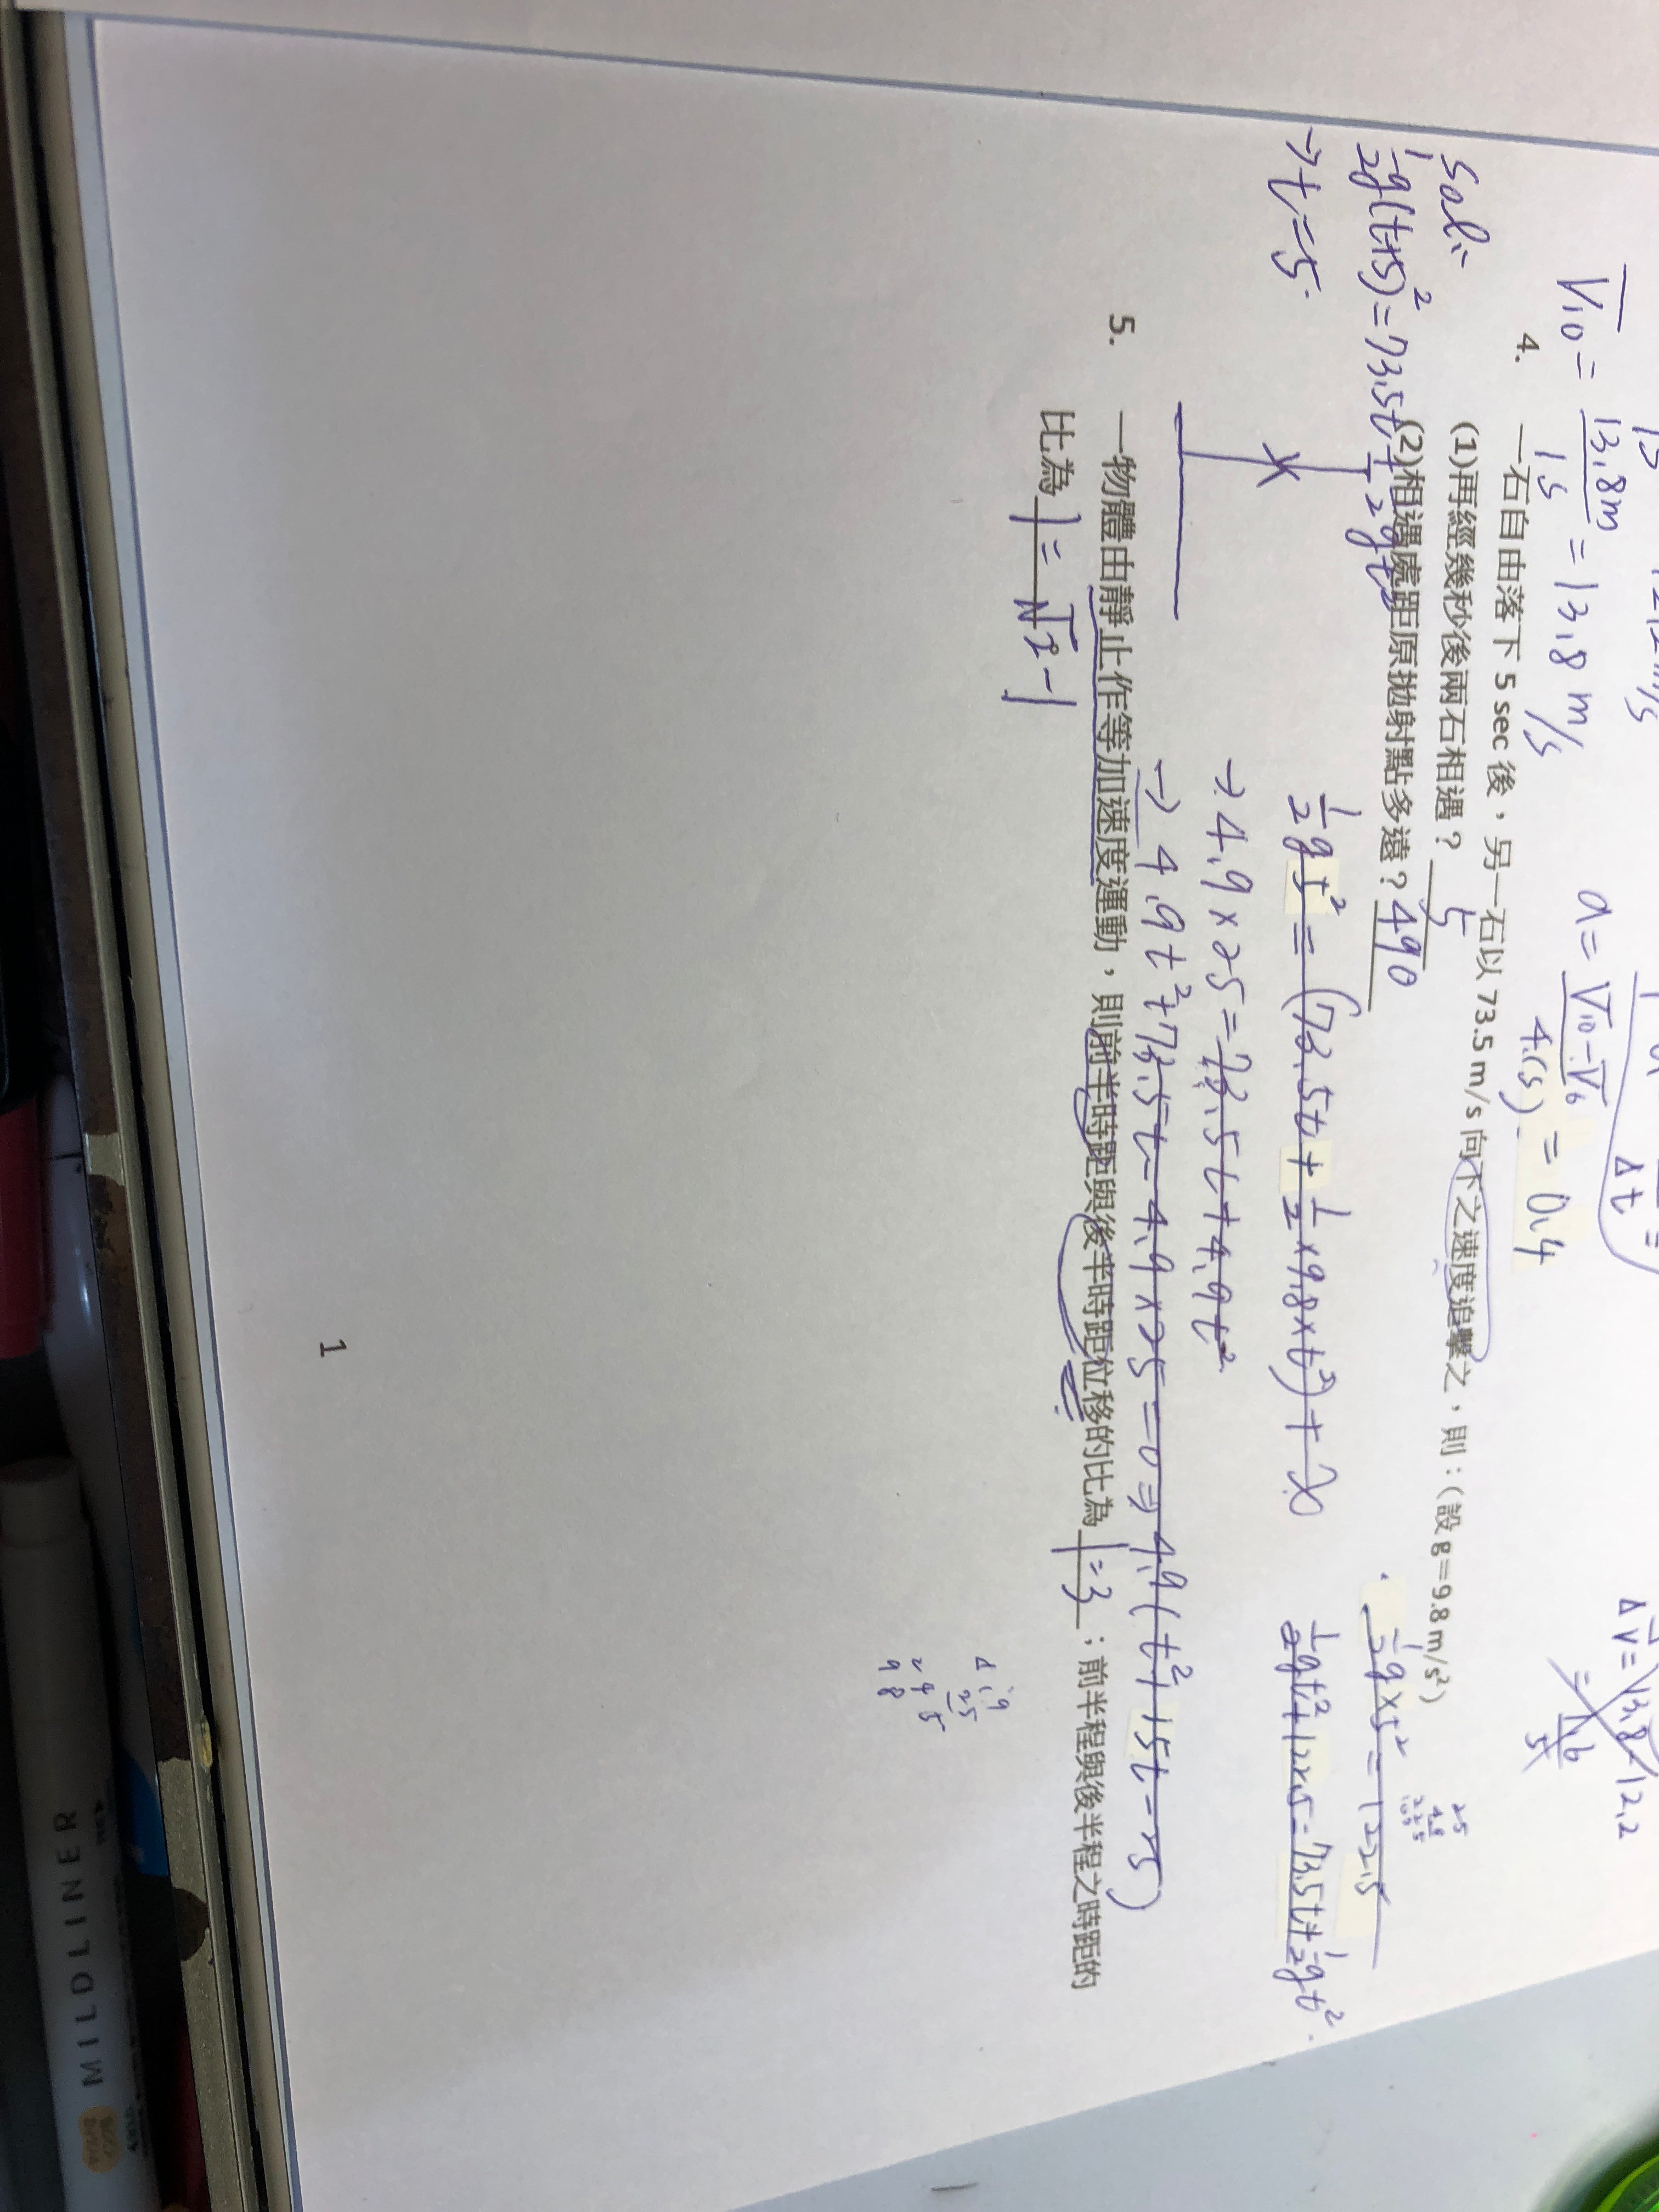 V̅₁₀ = 13.8m / 1s = 13.8 m/s
a = V̅₁₀ - V̅₆ / 4(s) = 0.4
Δt
4. 一石自由落下 5 sec 後，另一石以 73.5 m/s 向下之速度追擊之，則：(設 g＝9.8 m/s²)
(1)再經幾秒後兩石相遇？ 5
(2)相遇處距原拋射點多遠？ 490
Sol:
½g(t+5)² = 73.5t + ½gt²
→ t = 5
½g×5² = 122.5
½gt² = (73.5t + ½×9.8×t²) + x
½gt² + 122.5 = 73.5t + ½gt²
→ 4.9×25 = 73.5t + 4.9t²
→ 4.9t² + 73.5t - 4.9×25 = 0 ⇒ 4.9(t² + 15t - 25)
5. 一物體由靜止作等加速度運動，則前半時距與後半時距位移的比為 1:3 ；前半程與後半程之時距的
比為 1:√2-1
4.9
25
245
98
1
MILDLINER